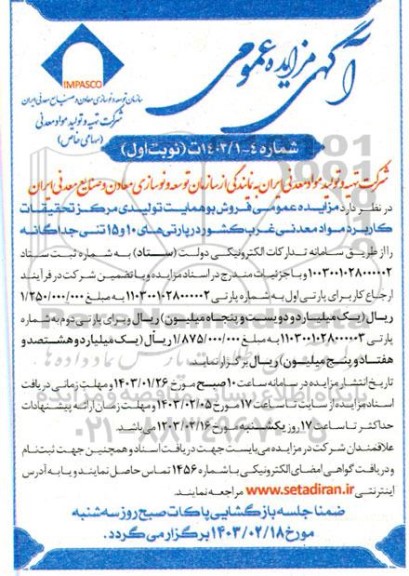 آگهی مزایده عمومی
IMPASCO
سازمان توسعه و نوسازی معادن و صنایع معدنی ایران
شرکت تهیه و تولید مواد معدنی
(سهامی خاص)
شماره ۴-۱۴۰۳/۱ت (نوبت اول)
شرکت تهیه و تولید مواد معدنی ایران به نمایندگی از سازمان توسعه و نوسازی معادن و صنایع معدنی ایران
در نظر دارد مزایده عمومی فروش بوهمایت تولیدی مرکز تحقیقات
کاربرد مواد معدنی غرب کشور در پارتی‌های ۱۰ و ۱۵ تنی جداگانه
را از طریق سامانه تدارکات الکترونیکی دولت (ستاد) به شماره ثبت ستاد
۱۰۰۳۰۰۱۰۲۸۰۰۰۰۰۲ و با جزئیات مندرج در اسناد مزایده و با تضمین شرکت در فرآیند
ارجاع کار برای پارتی اول به شماره پارتی ۱۱۰۳۰۰۱۰۲۸۰۰۰۰۰۲ به مبلغ ۱/۲۵۰/۰۰۰/۰۰۰
ریال (یک میلیارد و دویست و پنجاه میلیون) ریال و برای پارتی دوم به شماره
پارتی ۱۱۰۳۰۰۱۰۲۸۰۰۰۰۰۳ به مبلغ ۱/۸۷۵/۰۰۰/۰۰۰ ریال (یک میلیارد و هشتصد و
هفتاد و پنج میلیون) ریال برگزار نماید.
تاریخ انتشار مزایده در سامانه ساعت ۱۰ صبح مورخ ۱۴۰۳/۰۱/۲۶ و مهلت زمانی دریافت
اسناد مزایده از سایت تا ساعت ۱۷ مورخ ۱۴۰۳/۰۲/۰۵ و مهلت زمان ارائه پیشنهادات
حداکثر تا ساعت ۱۷ روز یکشنبه مورخ ۱۴۰۳/۰۲/۱۶ می‌باشد.
علاقمندان شرکت در مزایده می‌بایست جهت دریافت اسناد و همچنین جهت ثبت‌نام
و دریافت گواهی امضای الکترونیکی با شماره ۱۴۵۶ تماس حاصل نمایند و یا به آدرس
اینترنتی www.setadiran.ir مراجعه نمایند.
ضمنا جلسه بازگشایی پاکات صبح روز سه‌شنبه
مورخ ۱۴۰۳/۰۲/۱۸ برگزار می‌گردد.